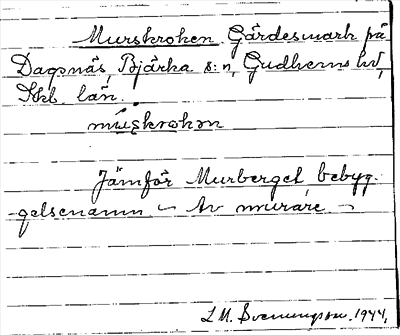 Murskroken. Gärdesmark på
Dagsnäs, Bjärka s:n, Gudhems hd,
Skb. län.
Jämför Murberget, bebyg-
gelsenamn — Av murare —
L.M. Svenungsson. 1944.